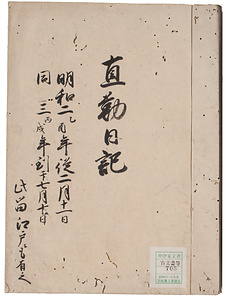 直勤日記
明和二乙酉年従二月十一日
同 三丙戌年到十七月十日
此留江戸ニ有之
705